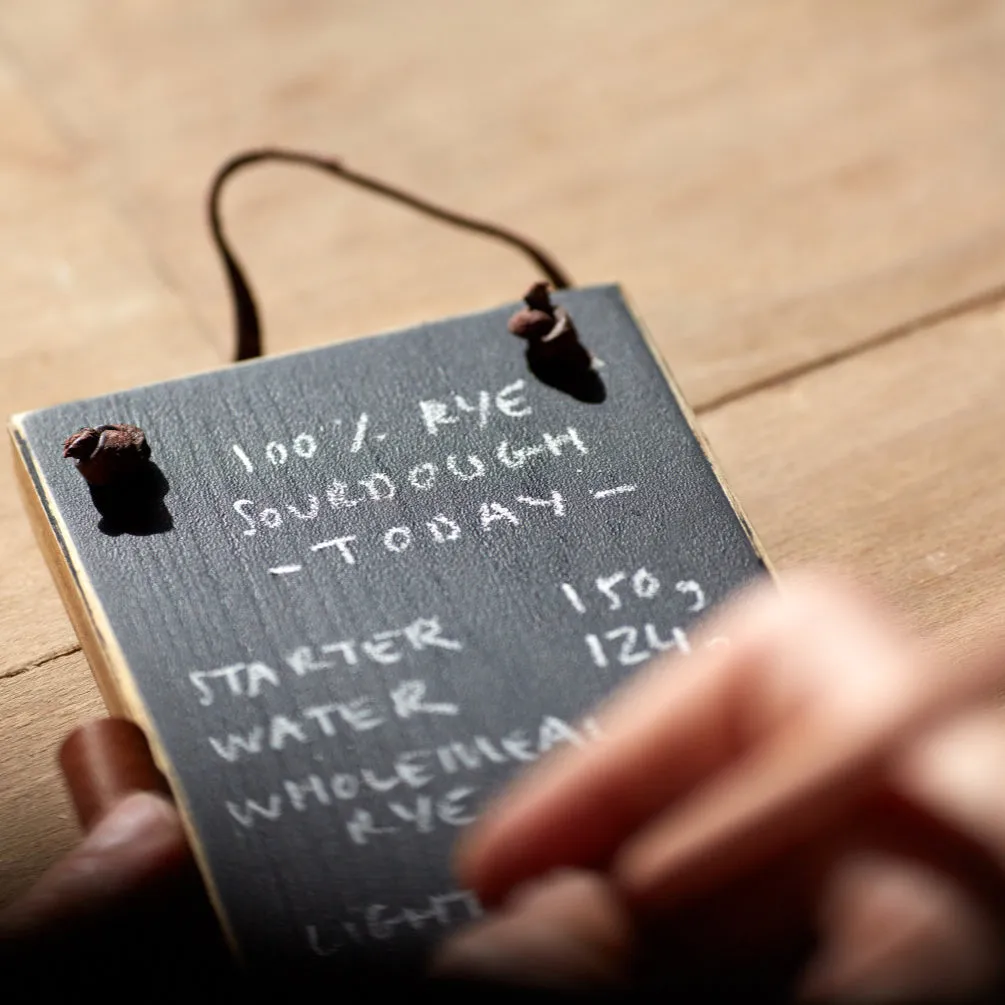 100% RYE
SOURDOUGH
- TODAY -
STARTER 150g
WATER 124
WHOLEMEA
RYE
LIGHT